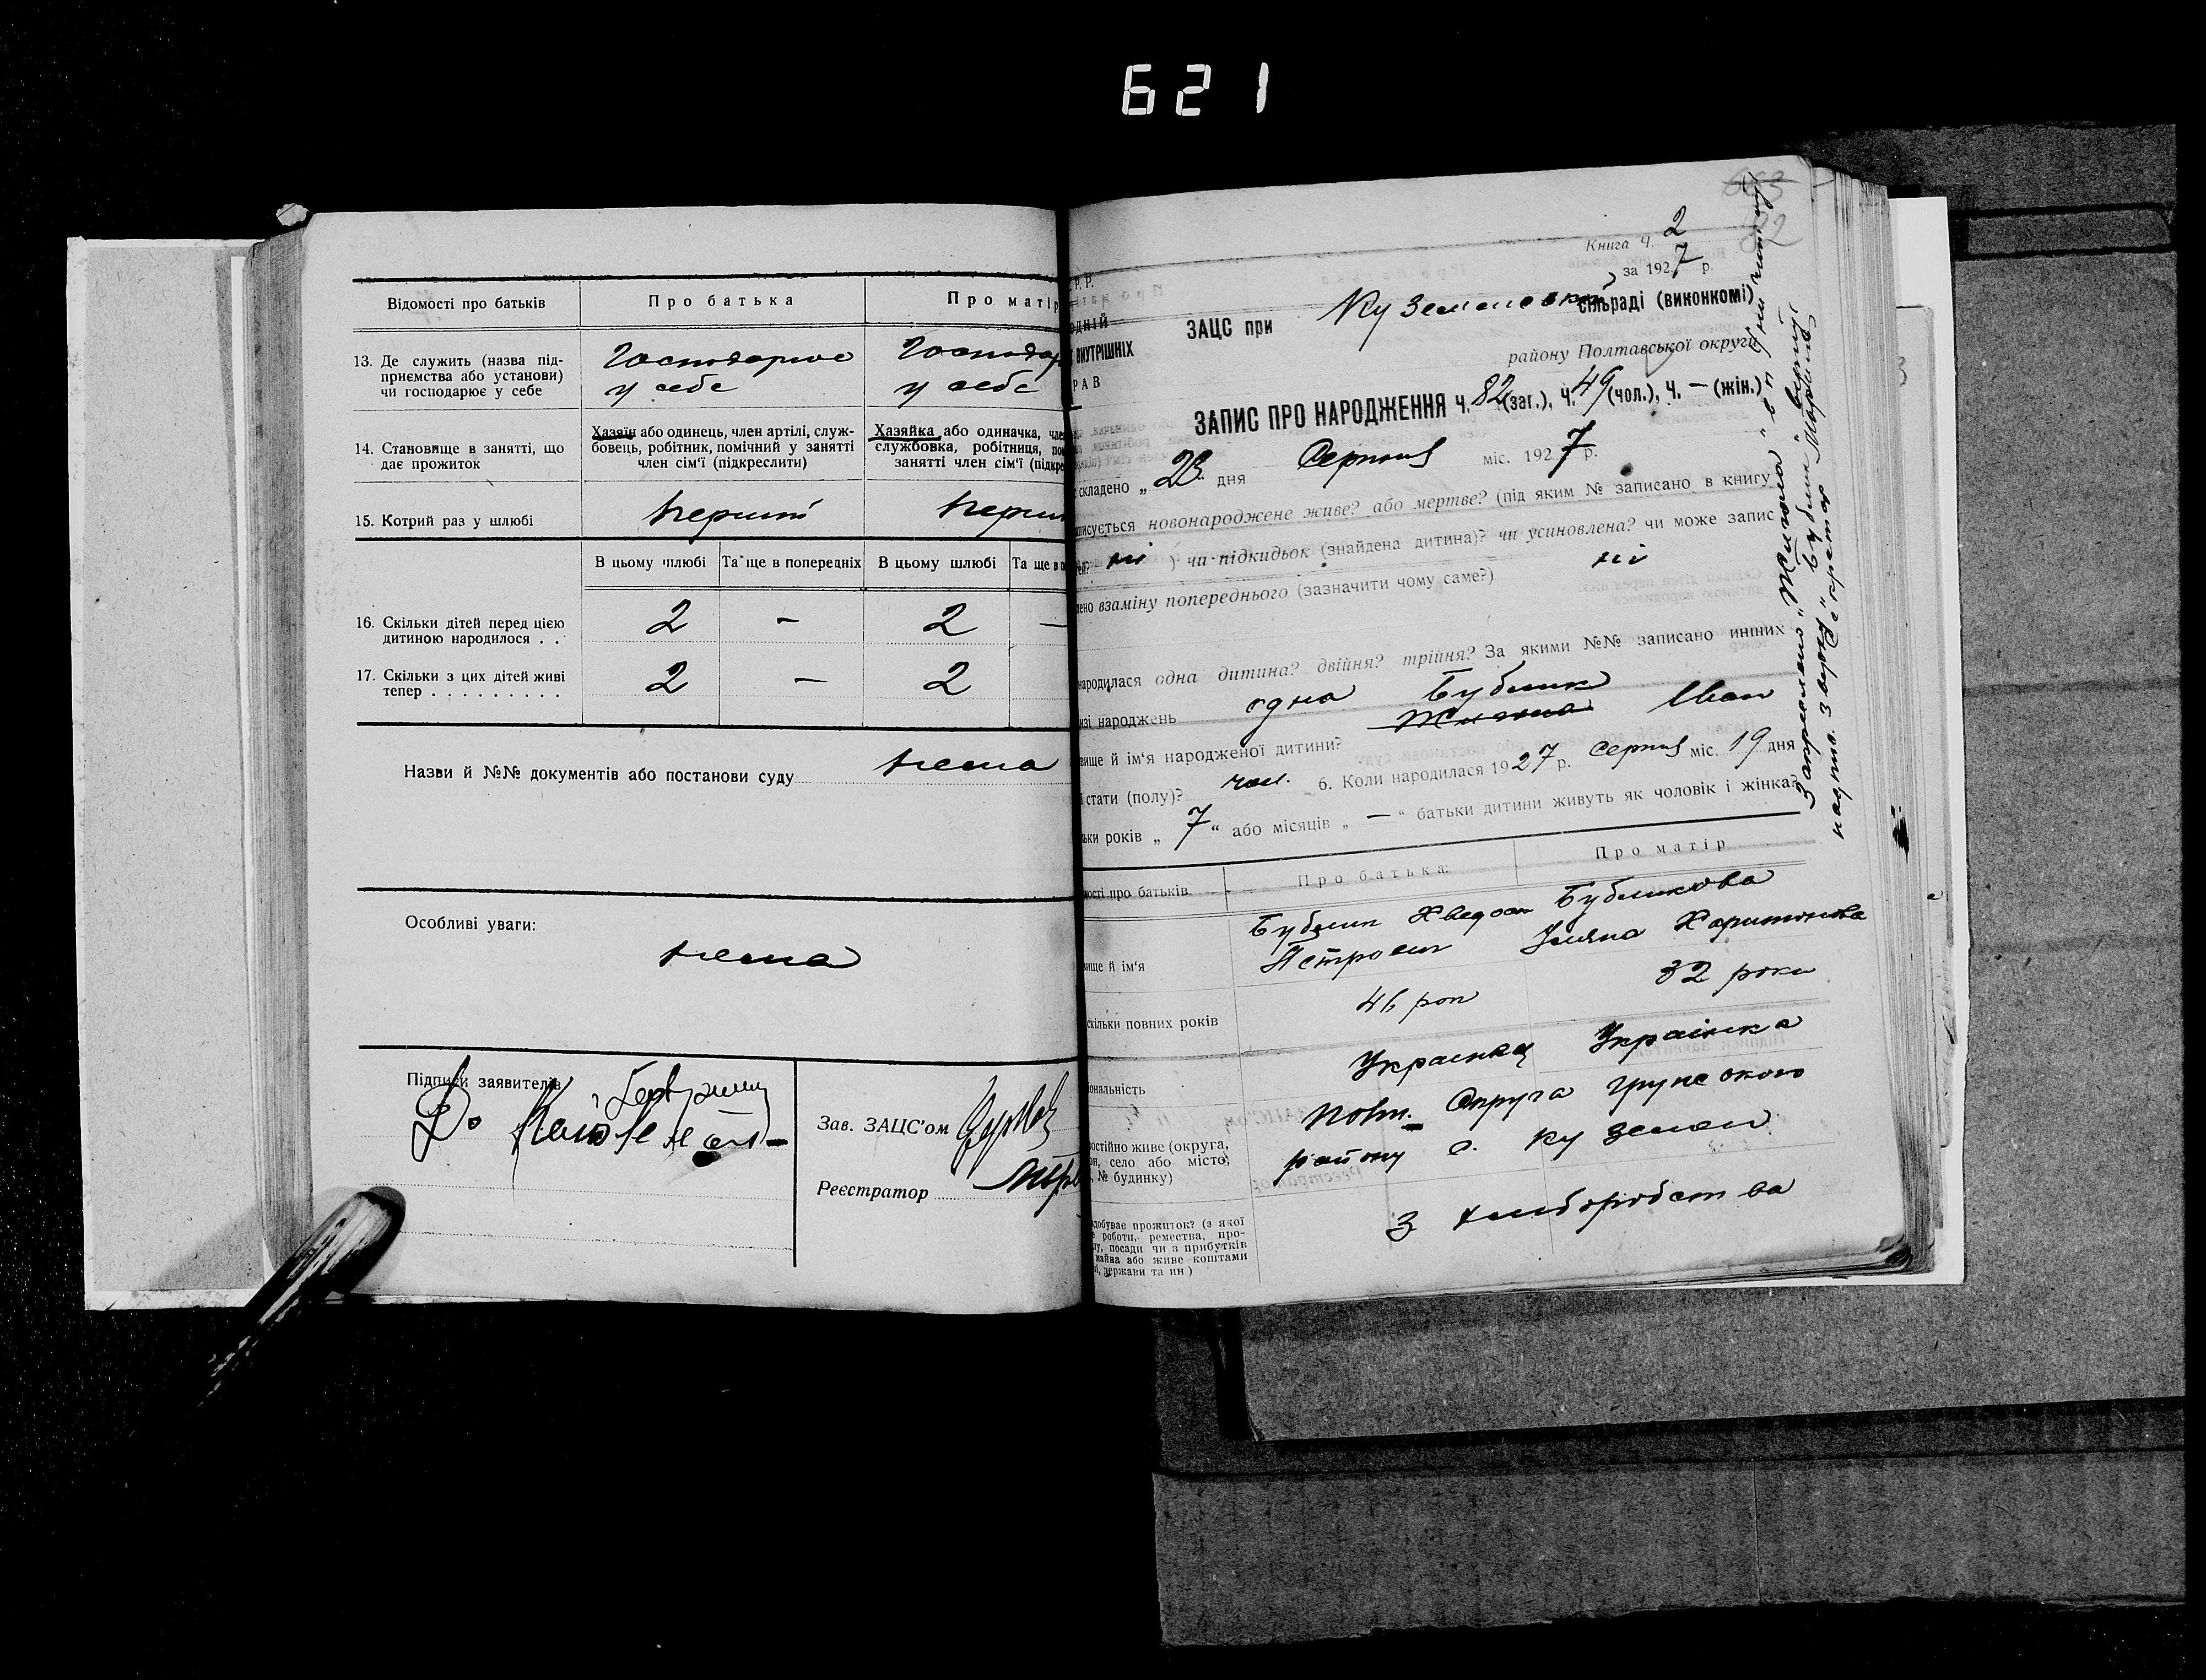 621
Відомості про батьків
Про батька
Про матір
13. Де служить (назва під-
приємства або установи)
чи господарює у себе
Господарює
у себе
Господар
у себе
14. Становище в занятті, що
дає прожиток
Хазяїн або одинець, член артілі, служ-
бовець, робітник, помічний у занятті
член сім'ї (підкреслити)
Хазяйка або одиначка, член
службовка, робітниця, пом
занятті член сім'ї (підкре
15. Котрий раз у шлюбі
перший
перш
В цьому шлюбі
Та ще в попередніх
В цьому шлюбі
Та ще в п
16. Скільки дітей перед цією
дитиною народилося . .
2 - 2 -
17. Скільки з цих дітей живі
тепер . . . . . . . . .
2 - 2
Назви й №№ документів або постанови суду нема
Особливі уваги:
нема
Підписи заявителів
Зав. ЗАЦС'ом
Реєстратор
Книга ч. 2
за 1927 р.
Р. Р.
ОДНІЙ
ВНУТРІШНІХ
РАВ
ЗАЦС при Куземенській сільраді (виконкомі)
району Полтавської округи
ЗАПИС ПРО НАРОДЖЕННЯ ч. 82 (заг.), ч. 49 (чол.), ч. — (жін.)
складено „23" дня Серпня міс. 1927 р.
писується новонароджене живе? або мертве? (під яким № записано в книгу
ні ) чи підкидьок (знайдена дитина)? чи усиновлена? чи може запис
лено взаміну попереднього (зазначити чому саме?) ні
народилася одна дитина? двійня? трійня? За якими №№ записано инших
зі народжень одна
Бублик
вище й ім'я народженої дитини? Жигила Іван
стати (полу)? чол. 6. Коли народилася 1927 р. Серпня міс. 19 дня
ьки років „7" або місяців „—" батьки дитини живуть як чоловік і жінка?
ості про батьків
Про батька
Про матір
вище й ім'я
Бублик Хведос
Петрович
Бубликова
Уляна Харитонова
скільки повних років
46 рок
32 роки
іональність
Українец
Українка
остійно живе (округа,
он, село або місто,
№ будинку)
Полт. Округа Грунського
району с. Куземен
здобуває прожиток? (з якої
роботи, ремества, про-
у, посади чи з прибутків
майва або живе коштами
і, держави та ин)
з хліборобства
Закреслено „Жигила"
надпис. зверху „Бублик" вірний
Секретар